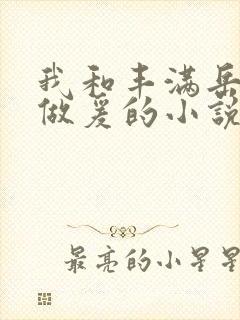 我和丰满岳
做爰的小説
最亮的小星星